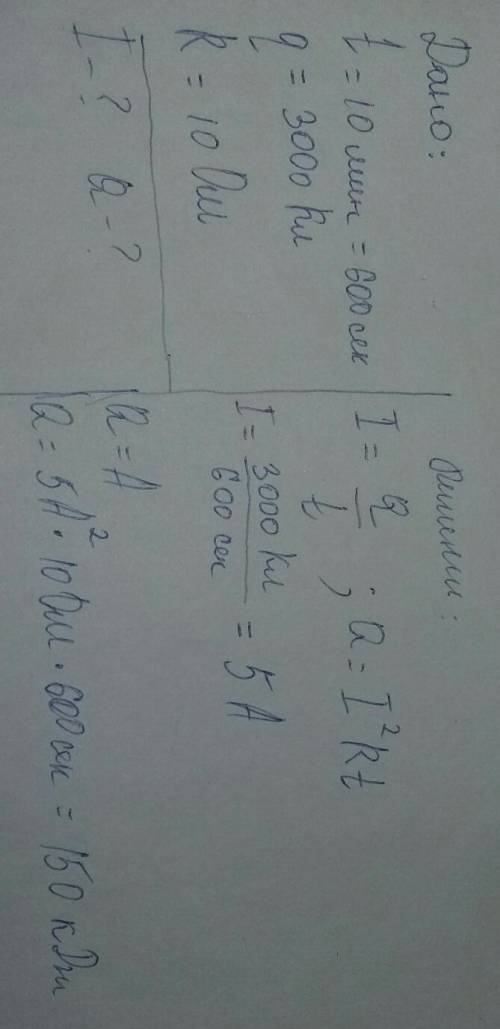 Дано:
t = 10 мин = 600 сек
q = 3000 Кл
R = 10 Ом
I - ? Q - ?
Решение:
I = q/t ; Q = I²Rt
I = 3000 Кл/600 сек = 5 А
Q = A
Q = 5A² · 10 Ом · 600 сек = 150 кДж